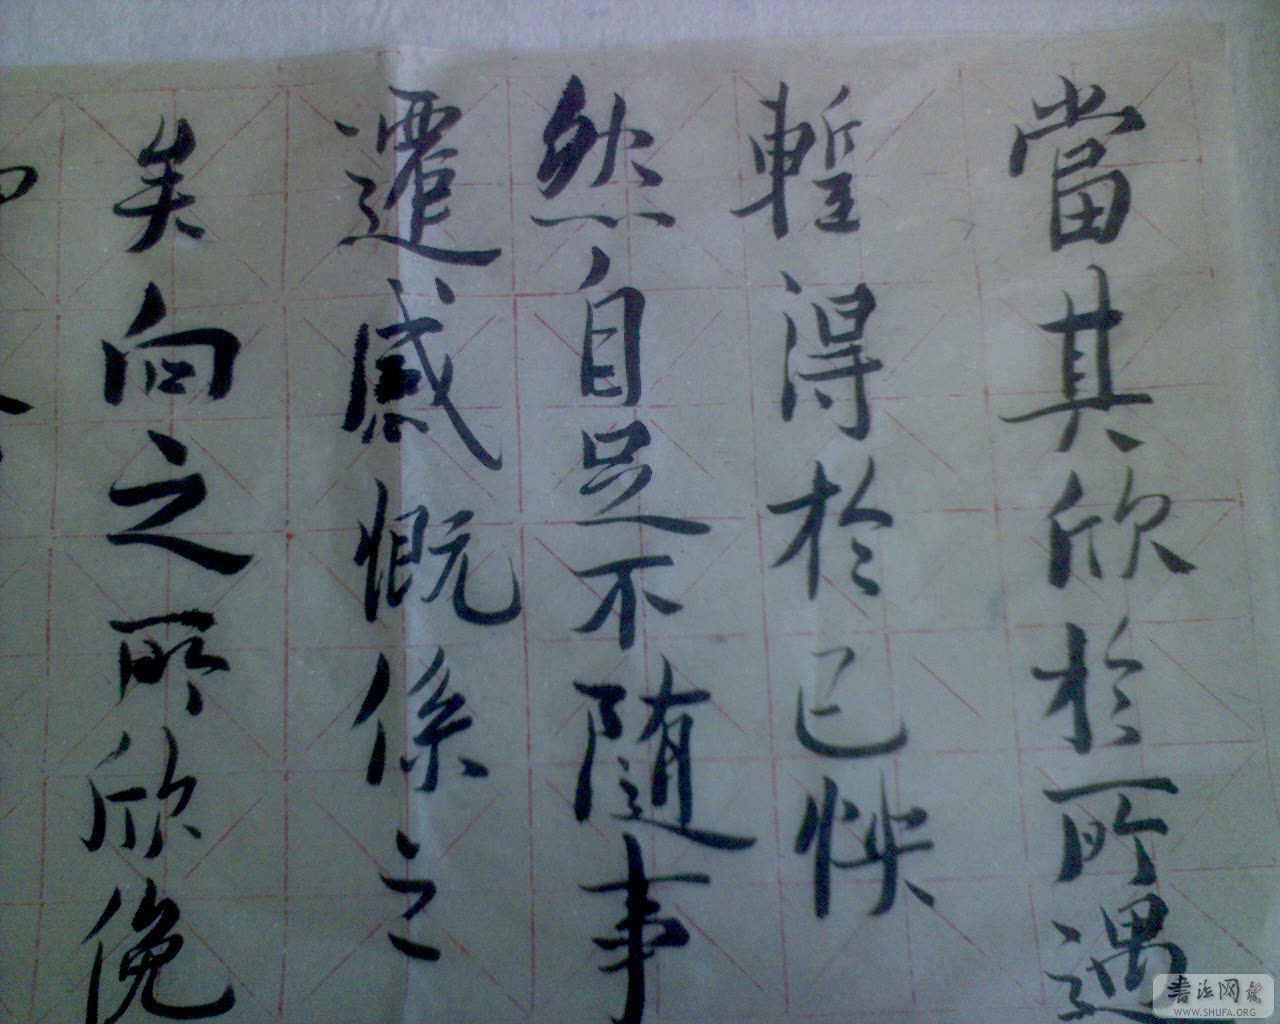 當其欣於所遇
暫得於己怏
然自足不隨事
遷感慨係之
矣向之所欣俛
书法网
WWW.SHUFA.ORG